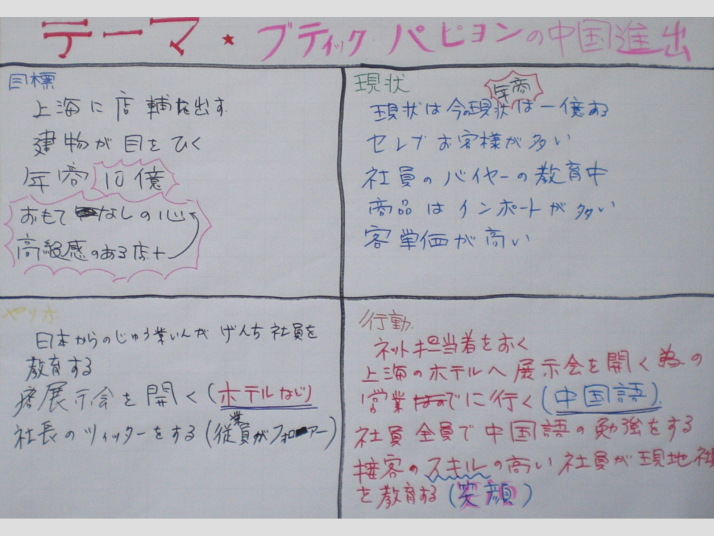 テーマ★ブティック パピヨンの中国進出
目標
上海に店輔を出す
建物が目をひく
年商10億
おもてなしの心
高級感のある店+
現状
年商
現状は今の現状は一億ある
セレブお客様が多い
社員のバイヤーの教育中
商品はインポートが多い
客単価が高い
日本からのじゅう業いんがげんち社員を
教育する
展示会を開く(ホテルなど)
社長のツィッターをする(従業員がフォロアー)
行動
ネット担当者をおく
上海のホテルへ展示会を開く為の
営業に行く(中国語)
社員全員で中国語の勉強をする
接客のスキルの高い社員が現地社
を教育する(笑顔)